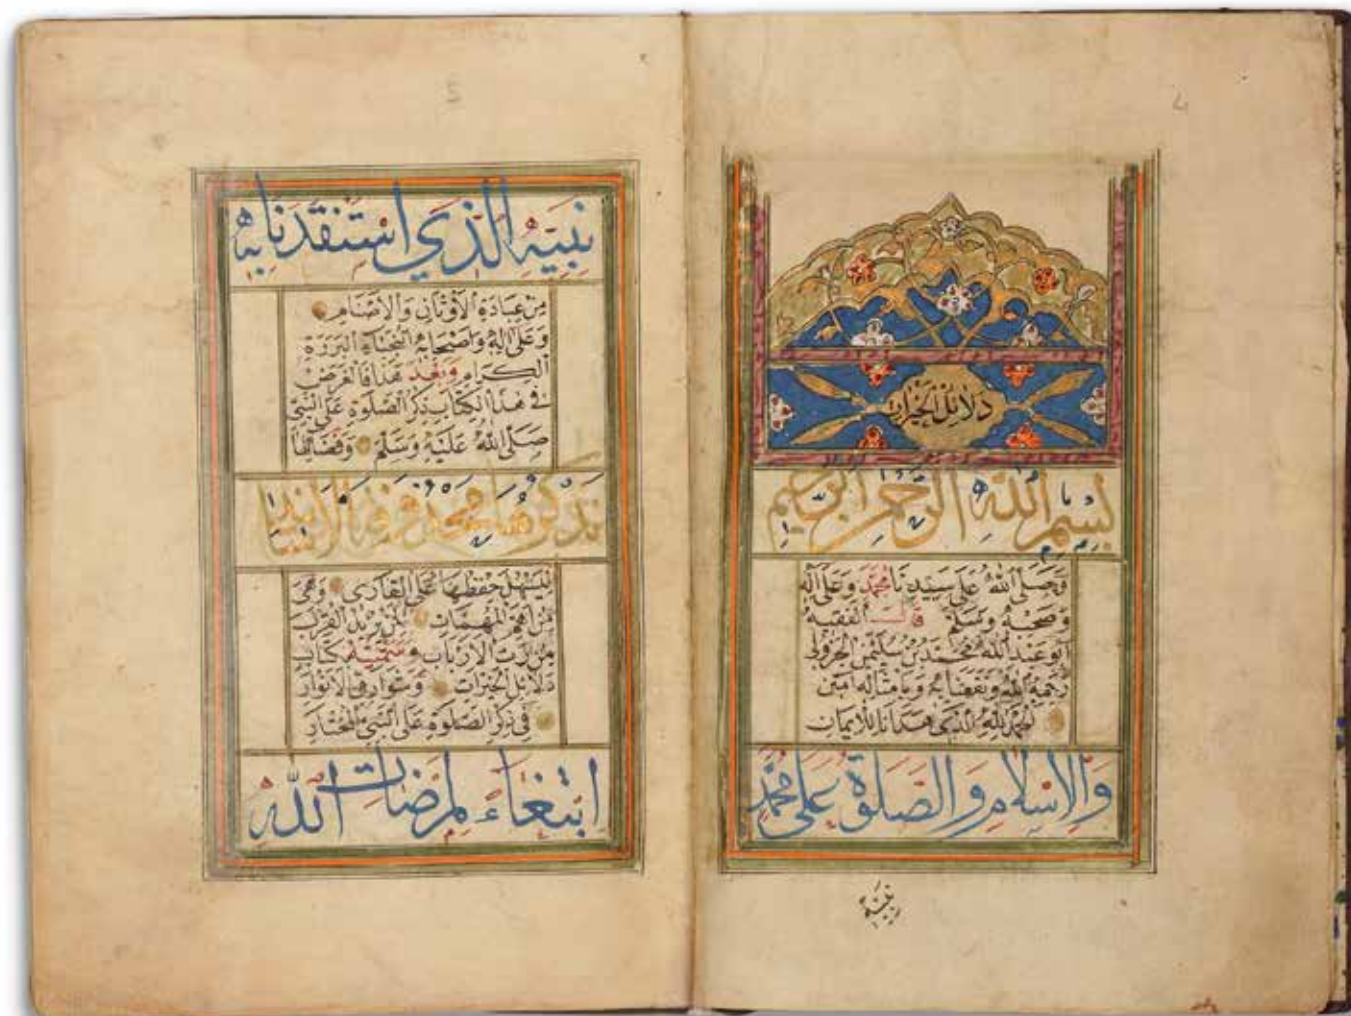 دلائل الخيرات
بسم الله الرحمن الرحيم
وَصَلَّى اللهُ عَلَى سَيِّدِنَا مُحَمَّد وَعَلَى آلِهِ
وَصَحْبِهِ وَسَلَّمَ قالـــ الفقيه
ابو عبد الله محمد بن سليمن الجزولى
رحمه الله ونفعنا به وبامثاله امين
الحمد لله الذى هدانا للايمان
والاسلام والصلوة على محمد
نبيه
نبيه الذي استنقدنا به
من عبادة الاوثان والاصنام
وعلى اله واصحابه النجباء البررة
الكرام وبعد فهذا فالغرض
فى هذا الكتاب ذكر الصلوة على النبى
صلى الله عليه وسلم وفضايلها
نذكرها محذوفة الاسانيد
ليسهل حفظها على القارى وهى
من اهم المهمات لمن يريد القرب
من رب الارباب وسميته كتاب
دلائل الخيرات وشوارق الانوار
فى ذكر الصلوة على النبى المختار
ابتغاء لمرضات الله